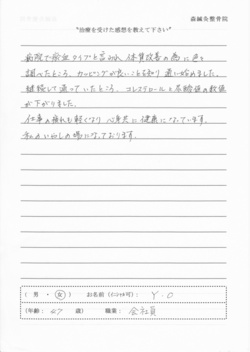 森鍼灸整骨院
"治療を受けた感想を教えて下さい"
病院で瘀血タイプと言われ、体質改善の為に色々
調べたところ、カッピングが良いことを知り通い始めました。
継続して通っていたところ、コレステロールと尿酸値の数値
が下がりました。
仕事の疲れも軽くなり心身共に健康になっています。
私のいやしの場になっております。
( 男 ・ 女 ) お名前 (イニシャル可): Y・O
(年齢: 47 歳) 職業: 会社員